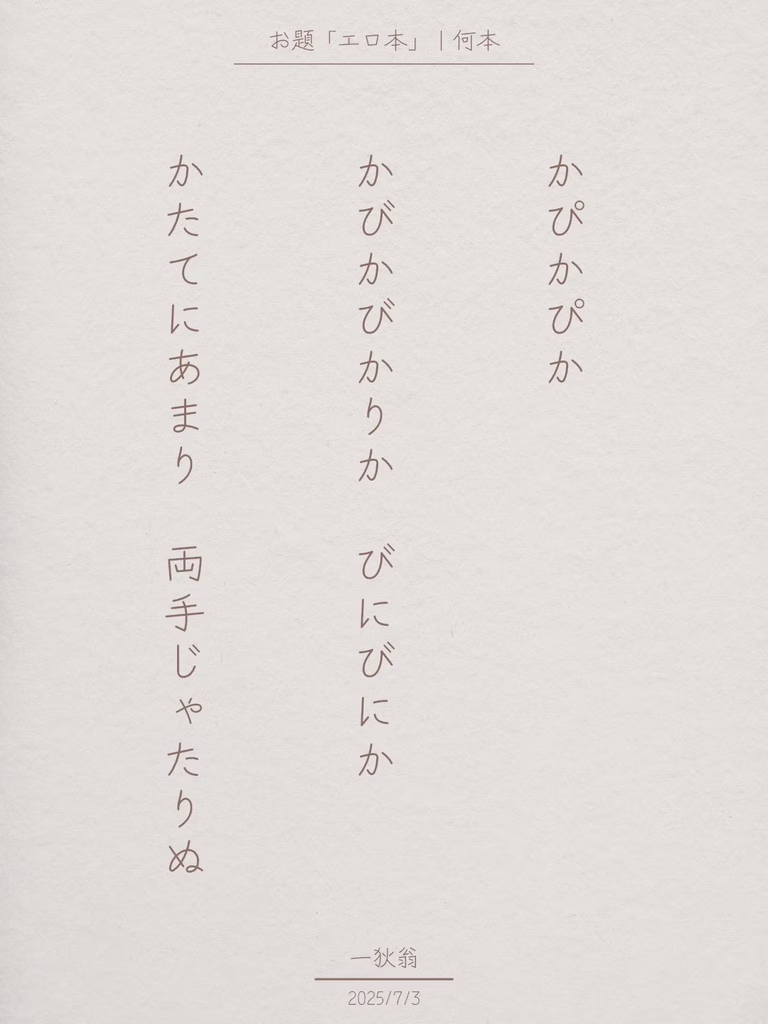 お題「エロ本」｜何本
かぴかぴか
かびかびかりか　びにびにか
かたてにあまり　両手じゃたりぬ
一狄翁
2025/7/3